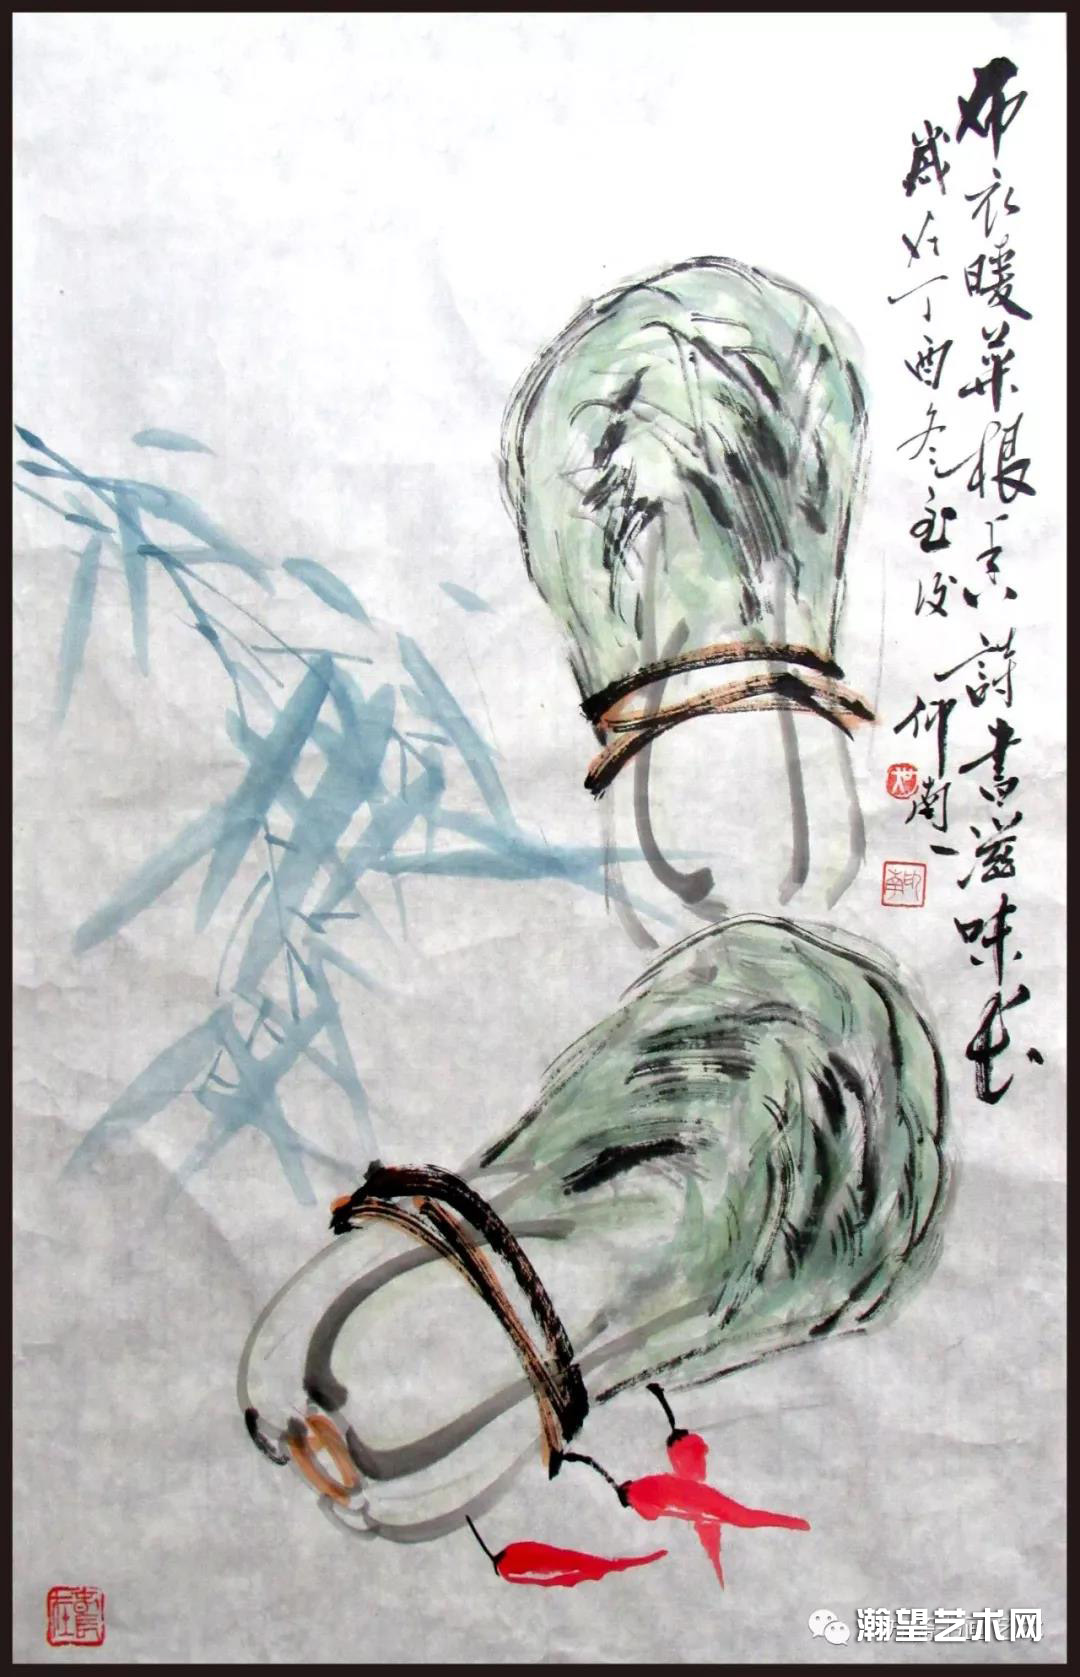 布衣暖菜根香诗書滋味长
歲在丁酉冬至後
仰南一
瀚望艺术网